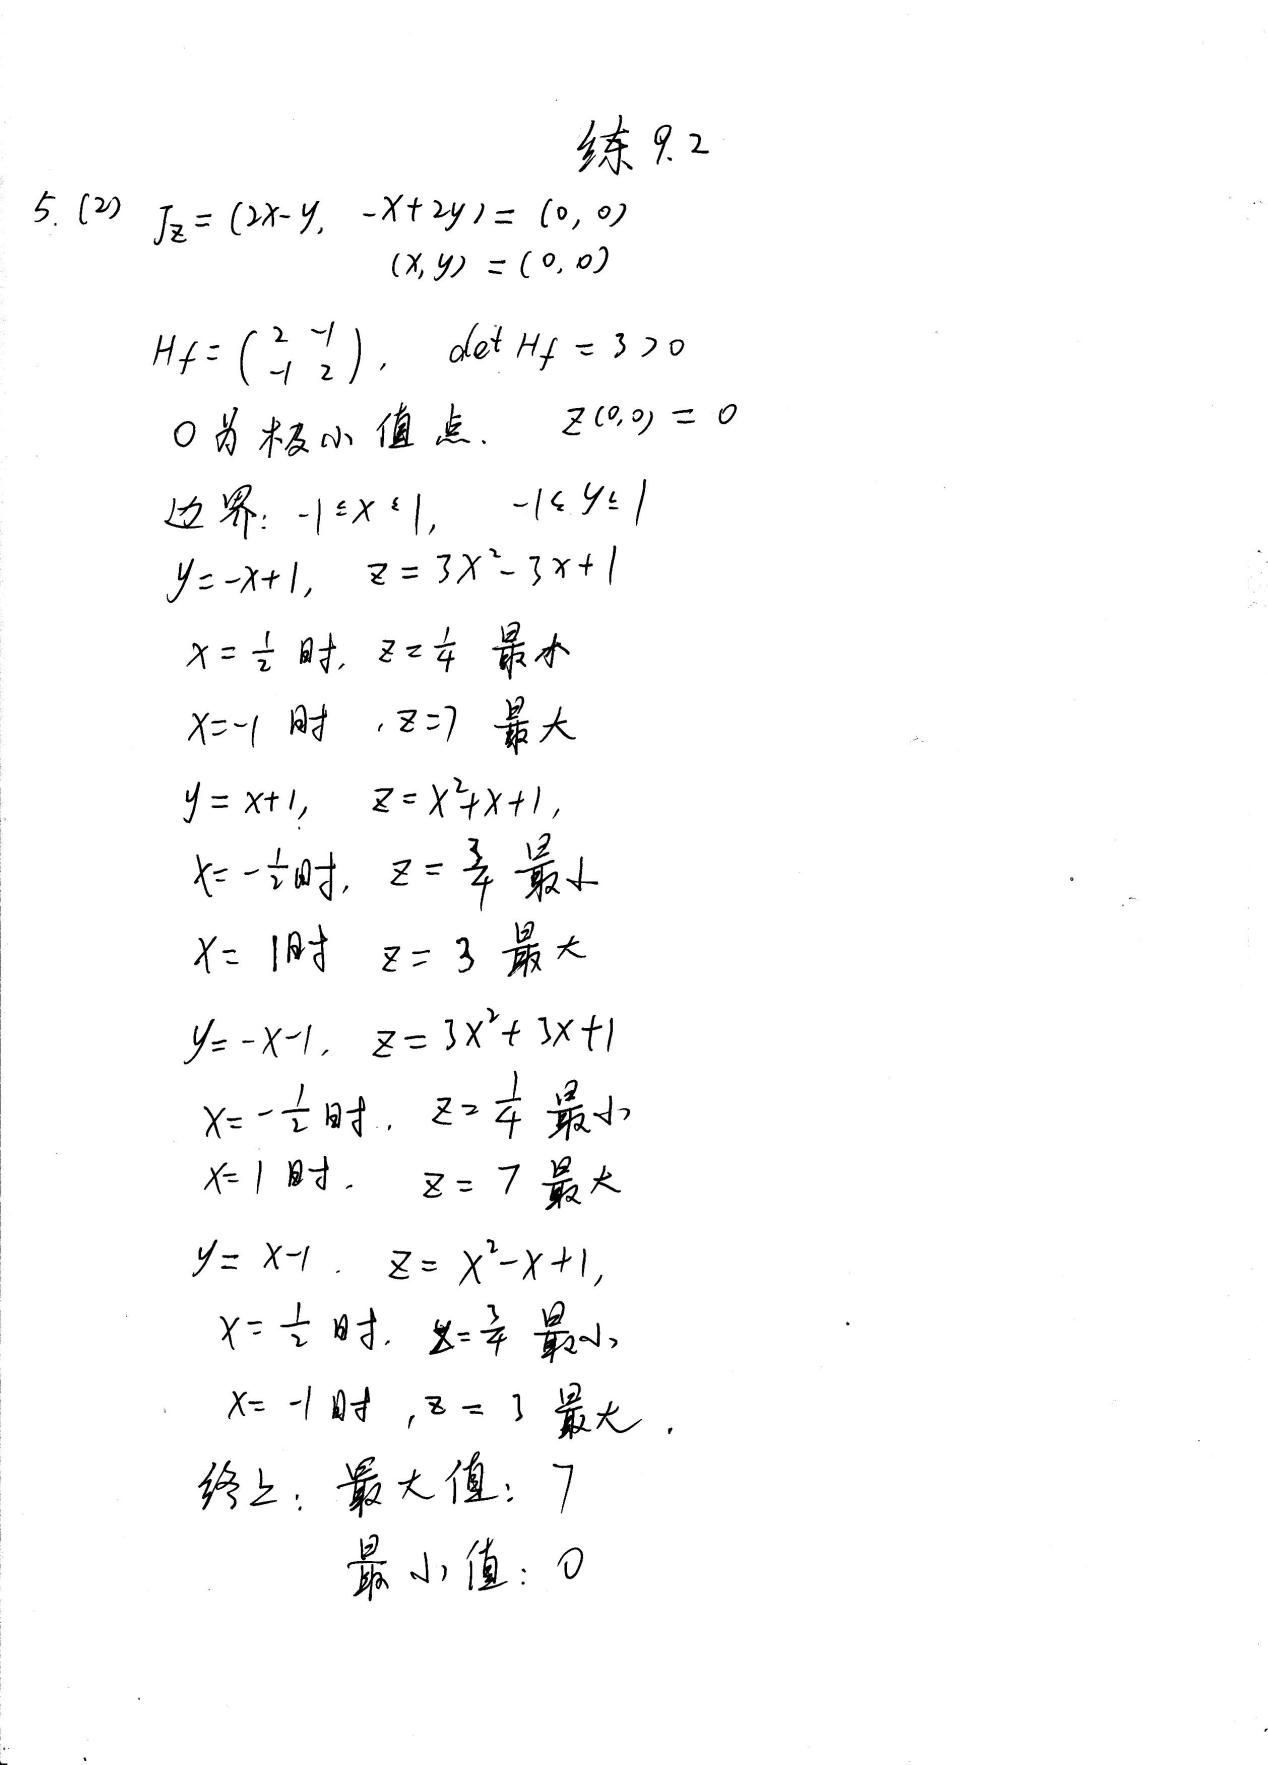 练 9.2
5. (2) Jz = (2x-y, -x+2y) = (0, 0)
(x, y) = (0, 0)
Hf = (2 -1 -1 2), det Hf = 3 > 0
0为极小值点. z(0,0) = 0
边界: -1≤x≤1, -1≤y≤1
y=-x+1, z = 3x²-3x+1
x = 1/2 时, z = 1/4 最小
x=-1 时, z=7 最大
y = x+1, z = x²+x+1,
x = -1/2时, z = 3/4 最小
x = 1时 z = 3 最大
y = -x-1, z = 3x²+3x+1
x = -1/2 时, z = 1/4 最小
x = 1 时. z = 7 最大
y = x-1. z = x²-x+1,
x = 1/2 时. z = 3/4 最小
x = -1 时, z = 3 最大.
终上: 最大值: 7
最小值: 0